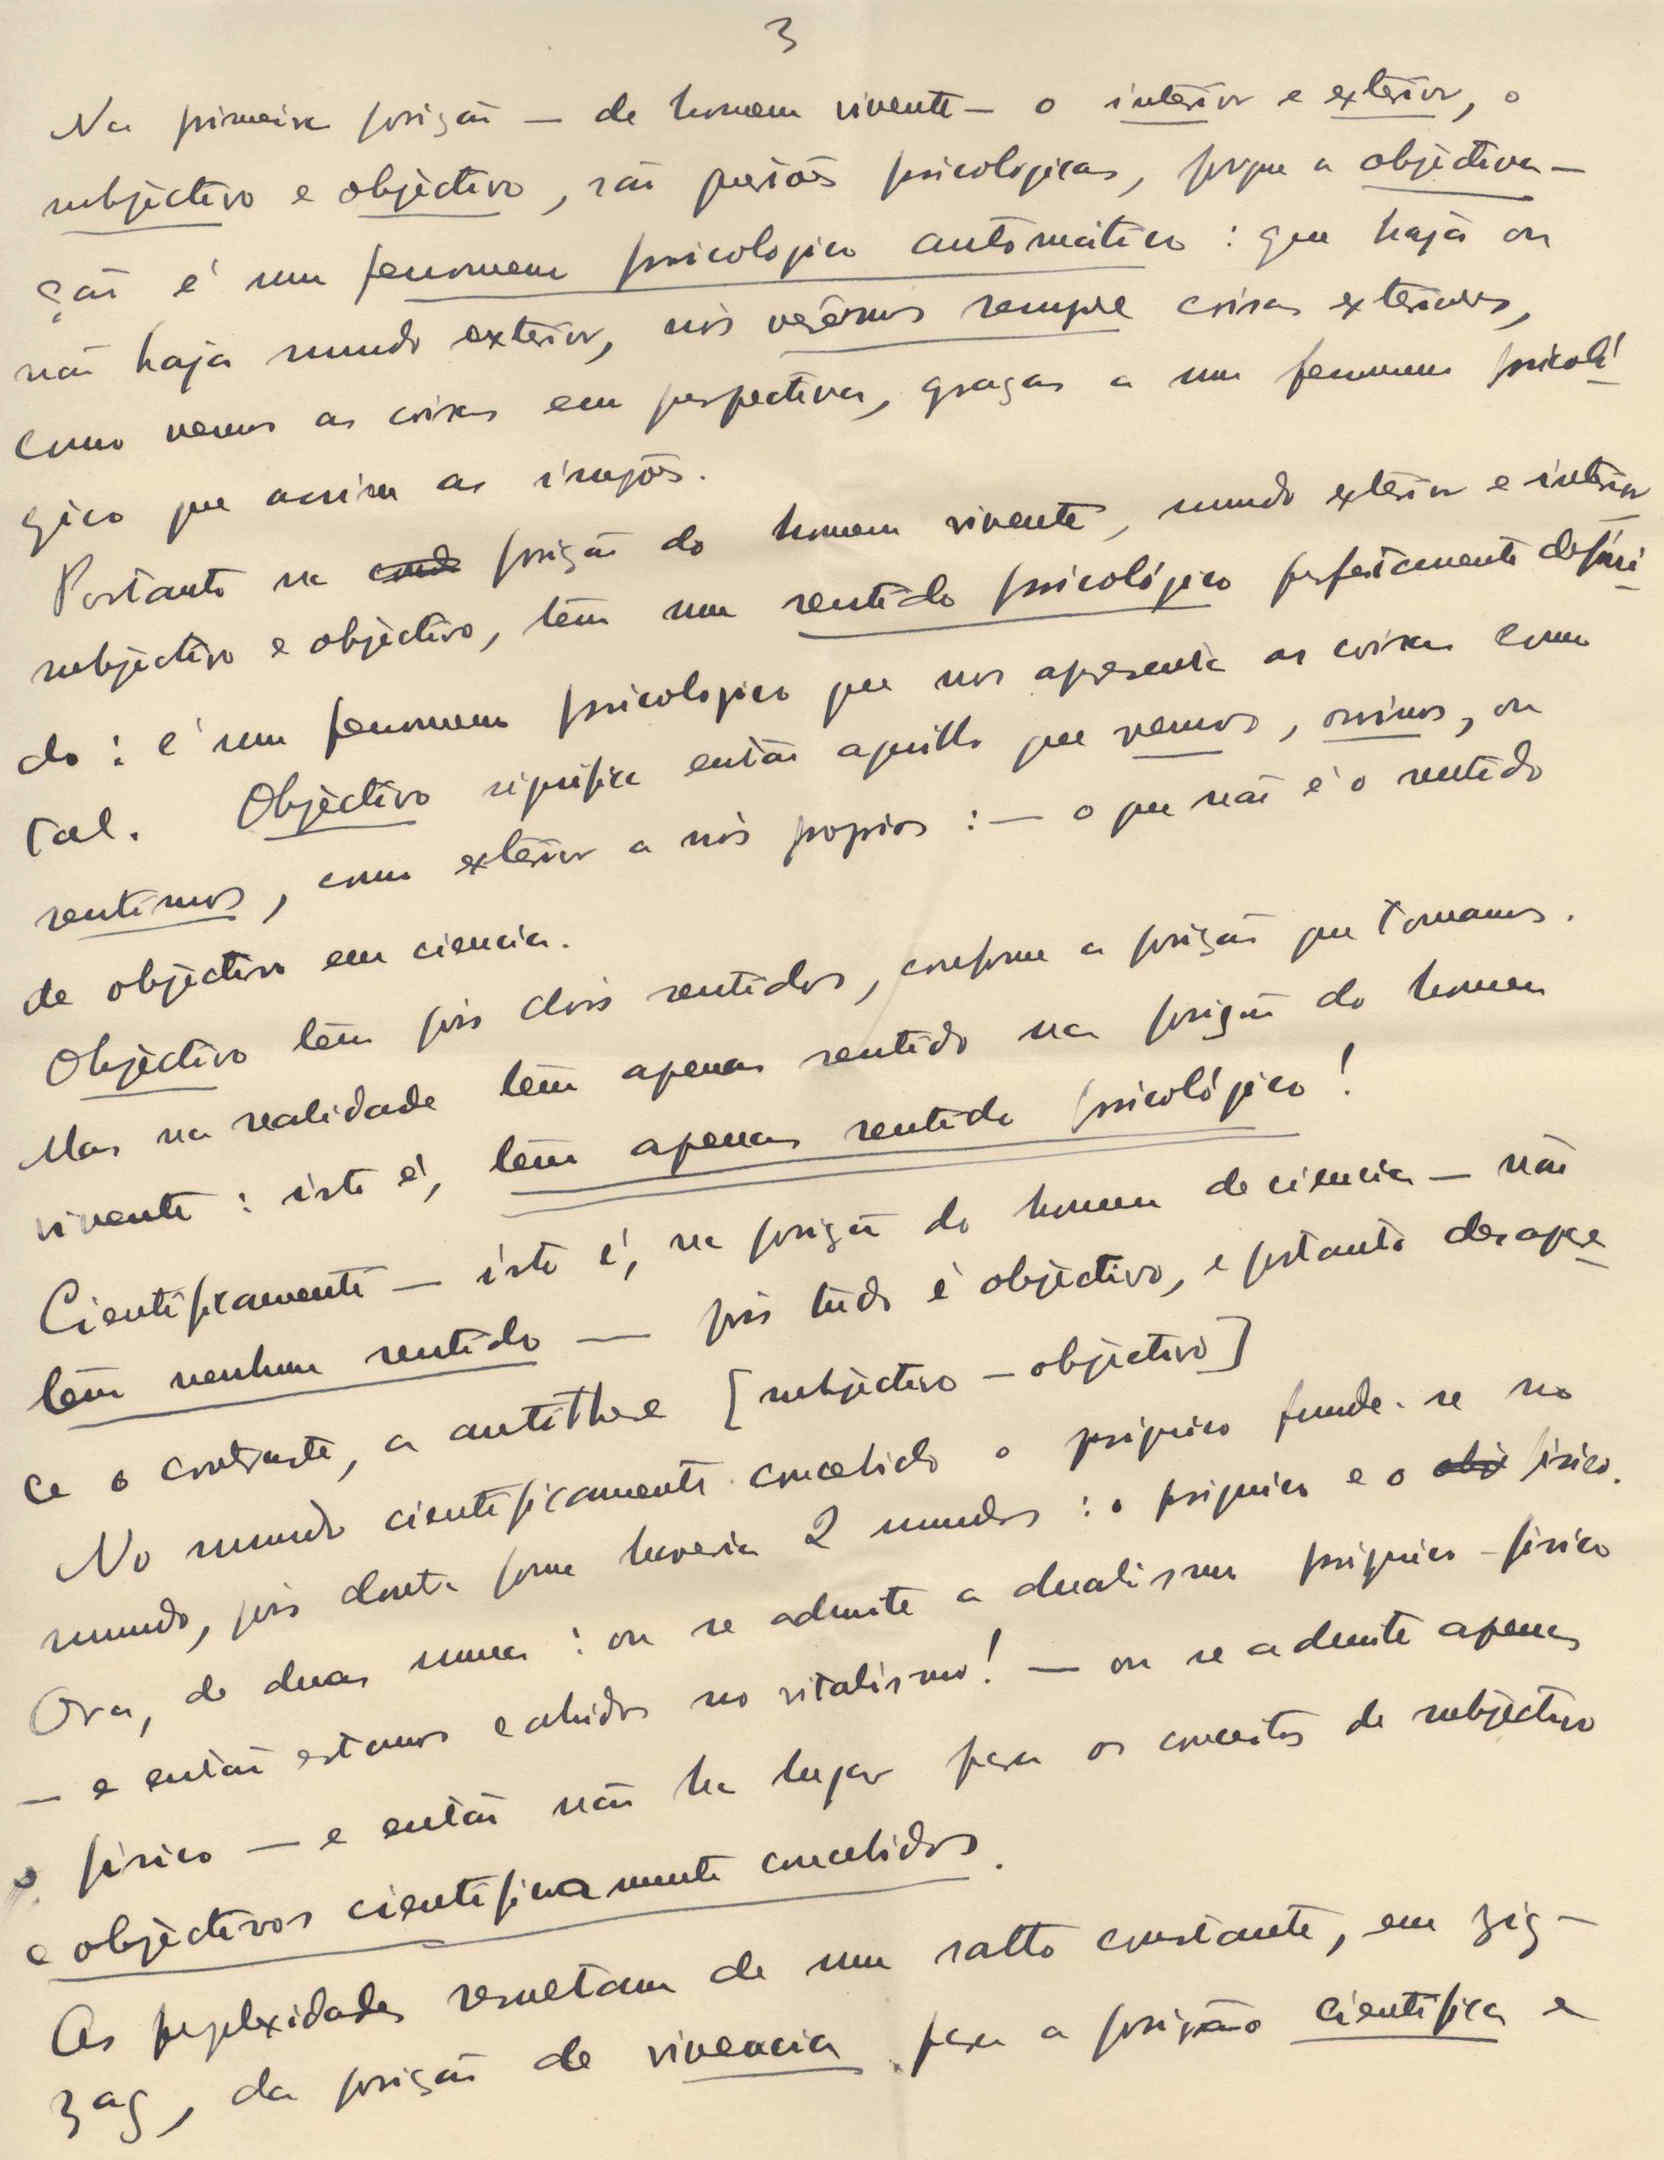 3
Na primeira posição — de homem vivente — o interior e exterior, o
subjectivo e objectivo, são questões psicologicas, porque a objectiva-
ção é um fenomeno psicologico automático : quer haja ou
não haja mundo exterior, nós veremos sempre coisas exteriores,
como vemos as coisas em perspectiva, graças a um fenomeno psicoló-
gico que assim as impõe.
Portanto na posição do homem vivente, mundo exterior e interior
subjectivo e objectivo, têm um sentido psicológico perfeitamente defini-
do : é um fenomeno psicologico que nos apresenta as coisas como
tal. Objectivo significa então aquillo que vemos, ouvimos, ou
sentimos, como exterior a nós proprios : — o que não é o sentido
de objectivo em ciencia.
Objectivo têm pois dois sentidos, conforme a posição que tomamos.
Mas na realidade têm apenas sentido na posição do homem
vivente : isto é, têm apenas sentido psicológico !
Cientificamente — isto é, na posição do homem de ciencia — não
têm nenhum sentido — pois tudo é objectivo, e portanto desapare-
ce o contraste, a antithese [subjectivo — objectivo]
No mundo cientificamente concebido o psiquico funde-se no
mundo, pois doutra forma haveria 2 mundos : o psiquico e o fisico.
Ora, de duas uma : ou se admite a dualismo psiquico-fisico
— e então estamos cahidos no vitalismo! — ou se admite apenas
o fisico — e então não ha lugar para os conceitos de subjectivo
e objectivos cientificamente concebidos.
As perplexidades resultam de um salto constante, em zig-
zag, da posição de vivencia para a posição cientifica e